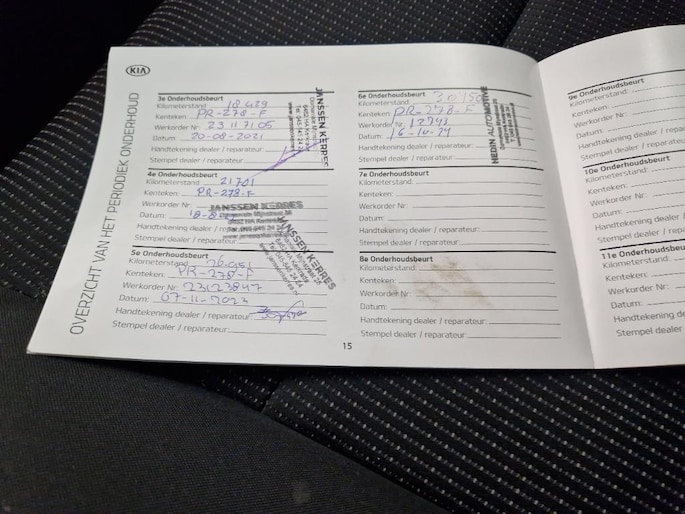 KIA
OVERZICHT VAN HET PERIODIEK ONDERHOUD
3e Onderhoudsbeurt
Kilometerstand
Kenteken: PR-278-F
Werkorder Nr: 23117105
Datum 20-08-2021
Handtekening dealer / reparateur:
Stempel dealer / reparateur:
JANSSEN KERRES
4e Onderhoudsbeurt
Kilometerstand: 21701
Kenteken: PR-278-F
Werkorder Nr:
JANSSEN KERRES
Datum 18-8
Handtekening dealer / repara
Stempel dealer / reparateur:
JANSSEN KERRES
5e Onderhoudsbeurt
Kilometerstand: 26.951
Kenteken: PR-278-F
Werkorder Nr: 23123847
Datum: 07-11-2023
Handtekening dealer / reparateur
Stempel dealer / reparateur:
6e Onderhoudsbeurt
Kilometerstand 30150
Kenteken: PR-278-F
Werkorder Nr: 12743
Datum: 16-10-24
Handtekening dealer / reparateur:
Stempel dealer / reparateur:
HEDIN AUTOMOTIVE
7e Onderhoudsbeurt
Kilometerstand:
Kenteken:
Werkorder Nr:
Datum:
Handtekening dealer / reparateur:
Stempel dealer / reparateur:
8e Onderhoudsbeurt
Kilometerstand:
Kenteken:
Werkorder Nr:
Datum:
Handtekening dealer / reparateur:
Stempel dealer / reparateur:
15
9e Onderhoudsbeurt
Kilometerstand:
Kenteken:
Werkorder Nr:
Datum:
Handtekening dealer
Stempel dealer / repara
10e Onderhoudsbeurt
Kilometerstand:
Kenteken:
Werkorder Nr:
Datum:
Handtekening dealer
Stempel dealer / rep
11e Onderhoudsbeur
Kilometerstand:
Kenteken:
Werkorder Nr:
Datum:
Handtekening de
Stempel dealer